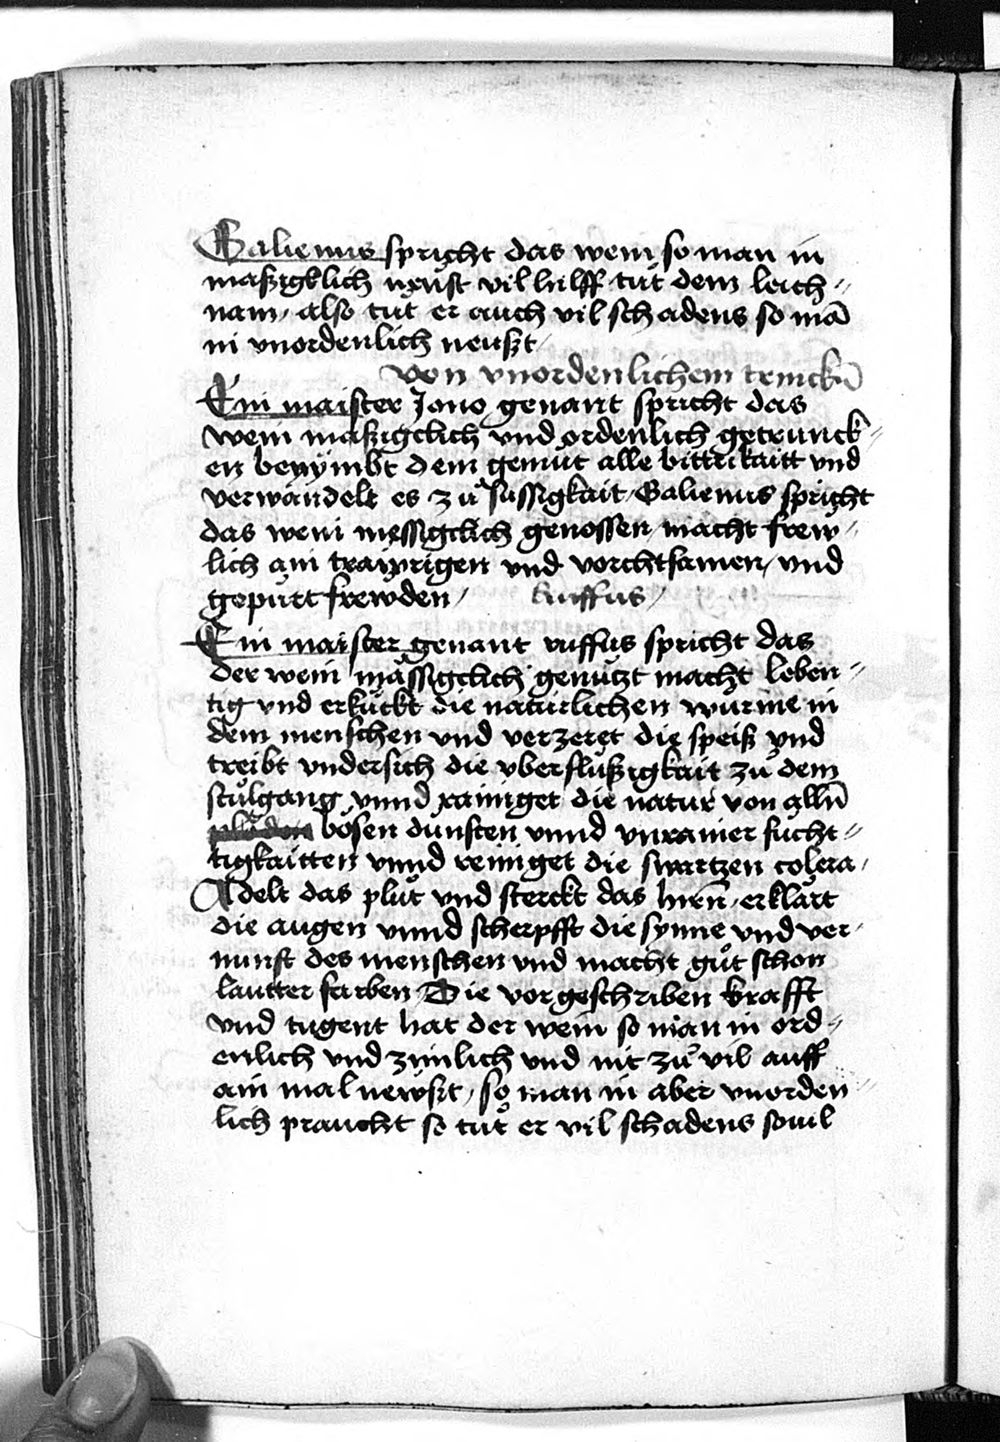 Galienus spricht das wein so man in
maßigklich neust vil hilff tut dem leich⸗
nam / also tut er auch vil schadens so mā
in vnordenlich neußt /
von vnordenlichem trinckn̄
Ein maister Jono genant spricht das
wein maßigclich vnd ordenlich getrunck⸗
en benÿmbt dem gemut alle bitterkaitt vnd
verwandelt es zů sussigkait / Galienus spricht
das wein messigclich genossen / macht frew⸗
lich ain traẅrigen vnd vorchtsamen / vnd
gepurt frewden / Ruffus /
Ein maister genant ruffus spricht das
der wein mässigclich genützt macht leben⸗
tig vnd erkückt die naturlichen würme in
dem menschen vnd verzeret die speiß vnd
treibt vndersich die vberflüßigkait zů dem
stůlgang vnnd rainiget die natur von alln̄
bösen dünsten vnnd vnrainer fücht⸗
tigkaitten vnnd reiniget die swartzen colera /
Adelt das plůt vnd sterckt das hirn̄ / erklärt
die augen vnnd scherpfft die synne vnd ver⸗
nunft des menschen vnd macht gůt schön
lautter farben / Die vorgeschriben krafft
vnd tugent hat der wein so man in ord⸗
enlich vnd zimlich vnd nit zů vil auff
ain mal newßt / so man in aber vnorden⸗
lich praucht so tůt er vil schadens souil